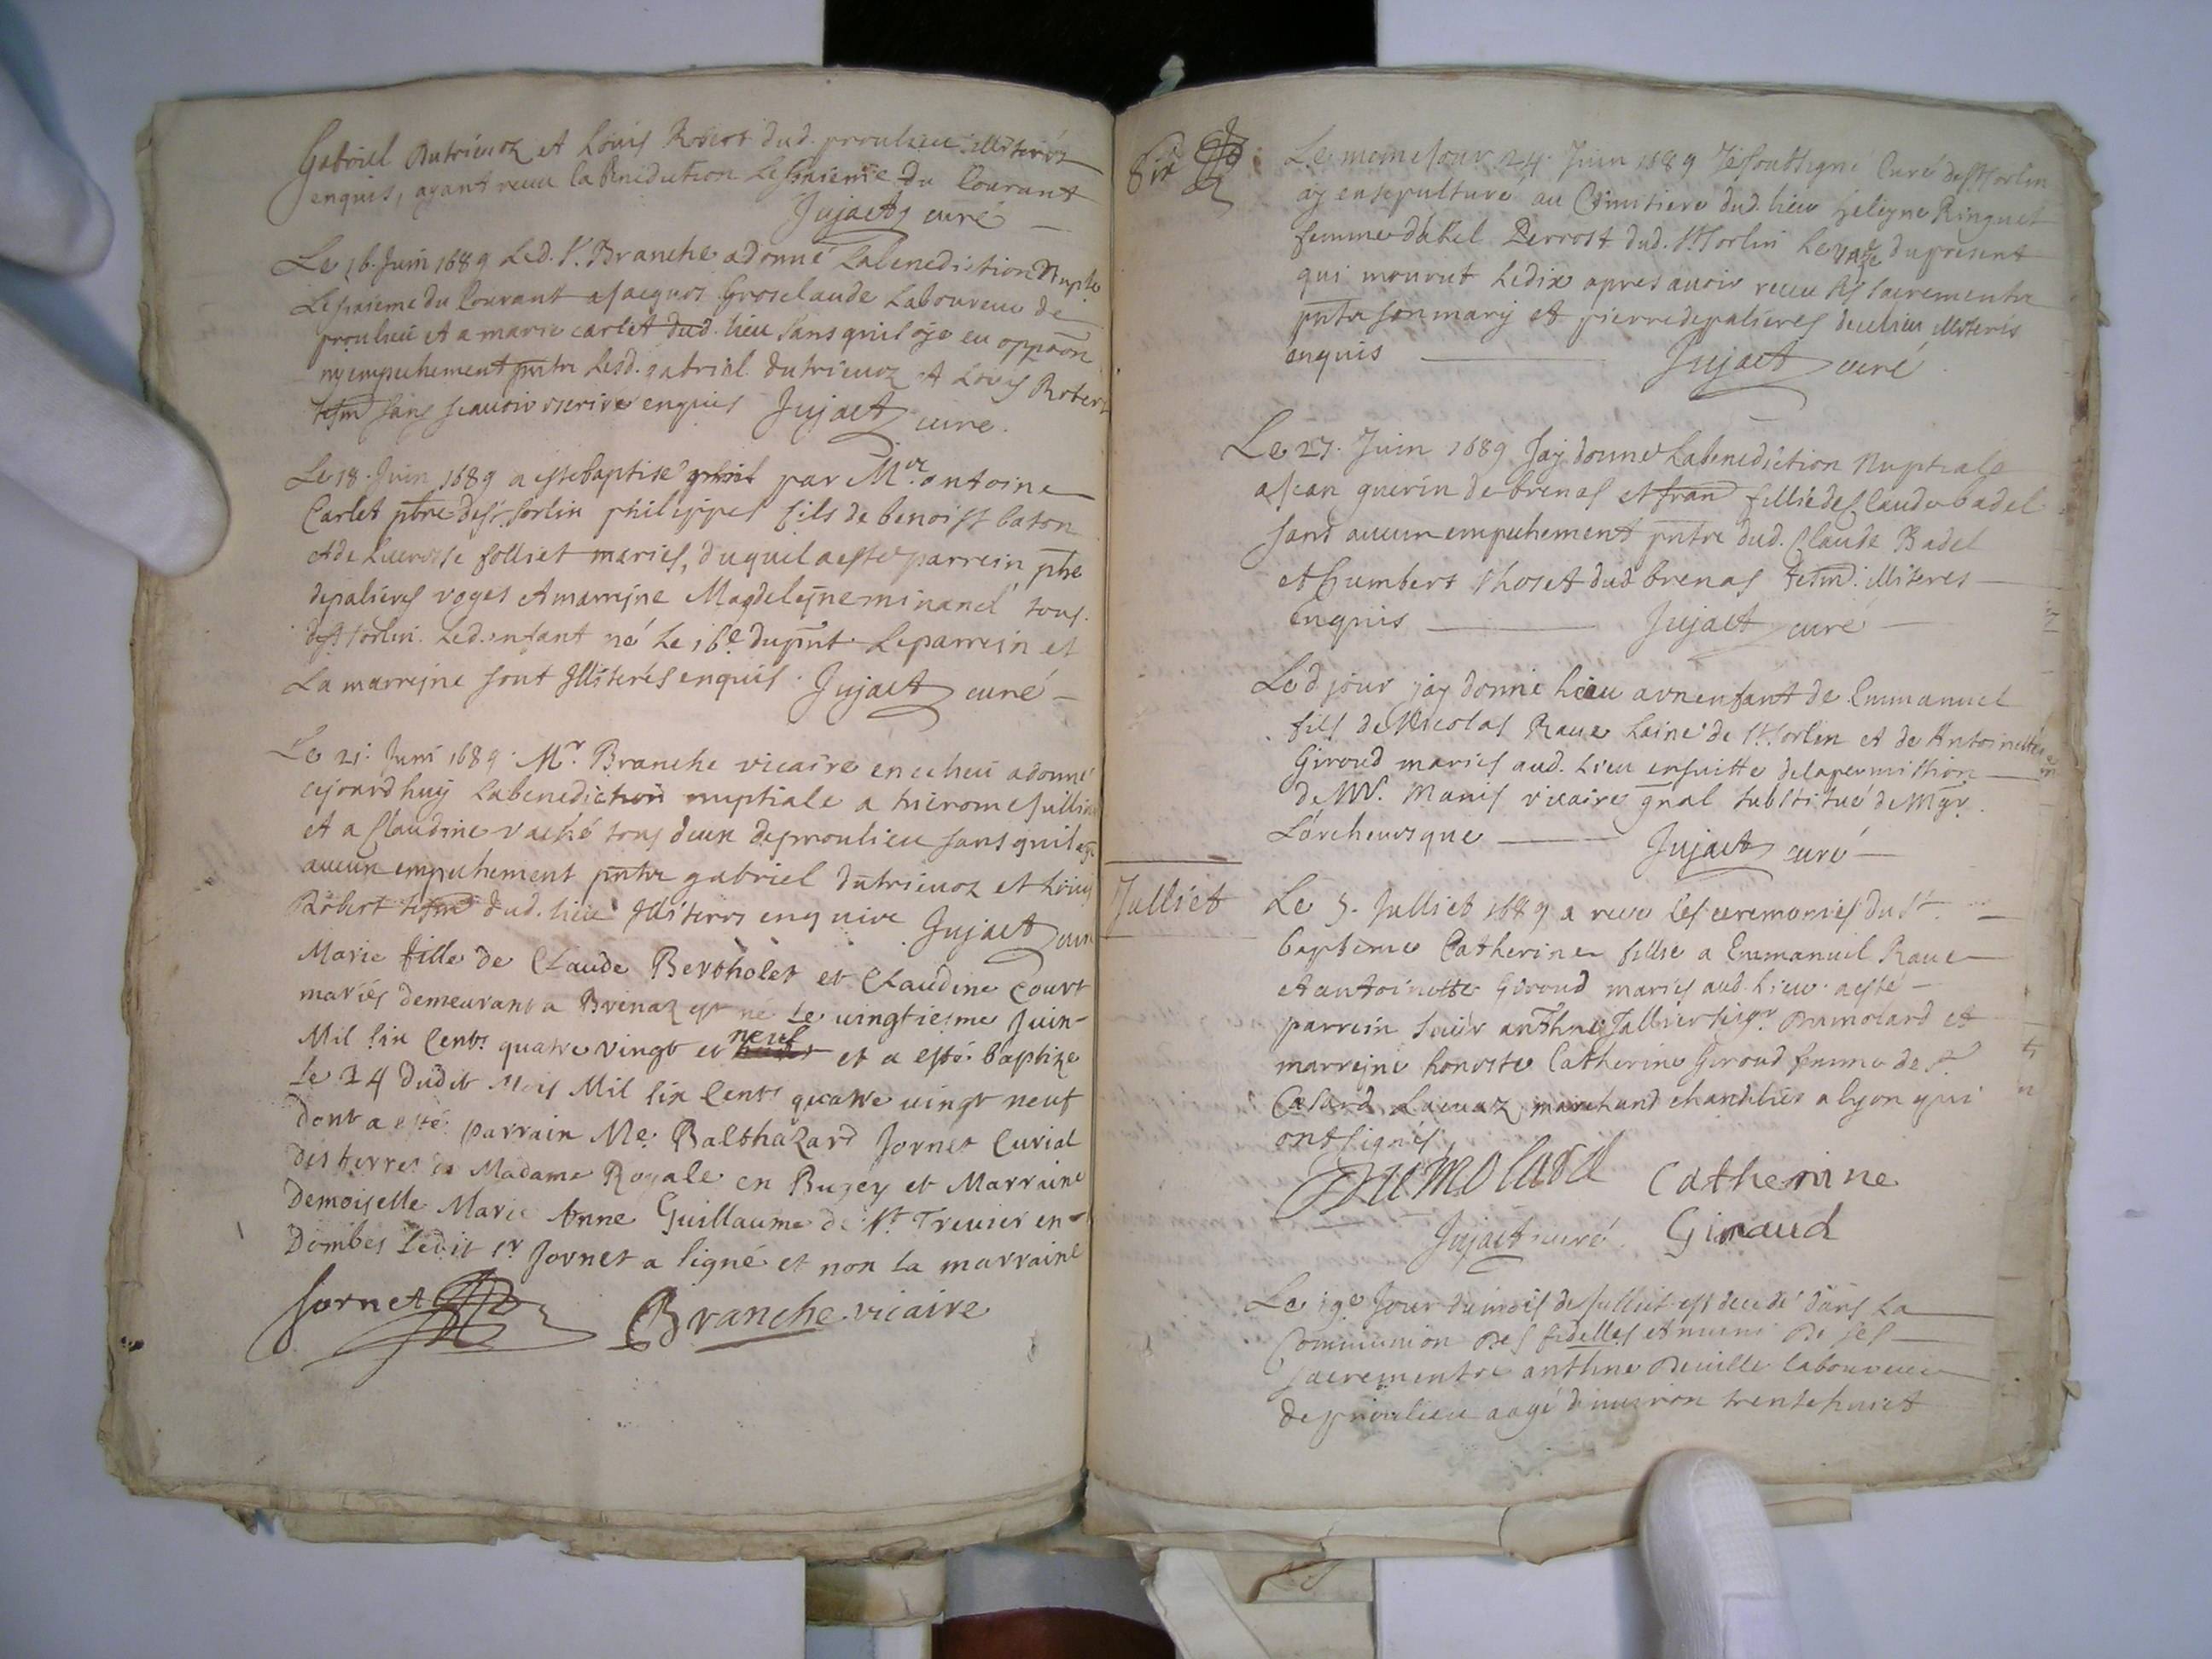 Gabriel Dutrieuoz et Louis Robert dud. proulieu illiterés
enquis, ayant receu la benediction le seizieme du Courant
Jujact curé
Le 16. Juin 1689 Led. Sr. Branche a donné La benediction Nuptle
Le seizieme du Courant a Jacques Groselaude Laboureur de
proulieu et a marie carlet dud. lieu sans quil aye eu oppõon
ny empechement pnts Lesd. gabriel dutrieuoz et Louis Robert
tesm sans scauoir escrire enquis Jujact cure.
Le 18. Juin 1689 a esté baptisé par Mre. antoine
Carlet ptre de st sorlin philippes fils de benoist baton
et de Lucresse folliet maries, duquel a esté parrein phe
depalieres voges et marreyne Magdeleyne minand tous
de st sorlin. Led. enfant né Le 16e du pnt. Le parrein et
La marreyne sont Illiterés enquis. Jujact curé
Le 21. Juin 1689. Mr. Branche vicaire en ce lieu a donné
cejourdhuy La benediction nuptiale a hierome Jullin
et a Claudine vaché tous deux de proulieu sans quil aye
aucun empechement pnts gabriel dutrieuoz et Louis
Robert tesm dud. lieu Illiteres enquire Jujact cure
Marie fille de Claude Bertholet et Claudine Court
mariés demeurant a Brenaz est né Le uingtiesme Juin
Mil six Cents quatre vingt et neuf et a esté baptize
Le 24 dudit Mois Mil six Cents quatre uingt neuf
dont a esté parrain Me. Balthazard Jornet Curial
des terres de Madame Royale en Bugey et Marraine
Demoiselle Marie Anne Guillaume de St. Treuier en
Dombes Ledit sr Jornet a signé et non La marraine
Jornet Branche vicaire
Six
Le meme Jour 24. Juin 1689 Je soubsigné Curé de St Sorlin
ay ensepulturé au Cimitiere dud. lieu heleyne Ringuet
femme dabel Perrost dud. St Sorlin Le unze du present
qui mourut Le dix apres auoir receu ses sacrements
pnts son mary et pierre depalieres de ce lieu illiterés
enquis Jujact curé
Le 27. Juin 1689 Jay donné La benediction Nuptiale
a Jean guerin de brenas et fran fillie de Claude badel
sans aucun empechement pnts dud. Claude Badel
et humbert Thoset dud brenas tesm. illiteres
Enquis Jujact curé
Led jour jay donné l'eau a vn enfant de Emmanuel
fils de Nicolas Raue Lainé de St. Sorlin et de Antoinette
Giroud mariés aud. Lieu ensuitte de la permission
de Mr. Manis vicaire gnal substitué de Mgr.
Lárcheuesque Jujact curé
Julliet
Le 5. Julliet 1689 a receu Les ceremonies du st
bapteme Catherine fillie a Emmanuel Raue
et antoinette Giroud mariés aud. Lieu. a esté
parrein Sieur anthne Tallier seigr Dumolard et
marreyne honeste Catherine Giroud femme de Sr.
Cesard Lauaz marchand chandelier a lyon qui
ont signés
Dumolard Catherine
Jujact curé. Giraud
Le 19e Jour du mois de Julliet est decedé dans La
Communion des fidelles et muni de ses
sacrements anthne Deuille laboureur
de proulieu aagé denuiron trentehuict